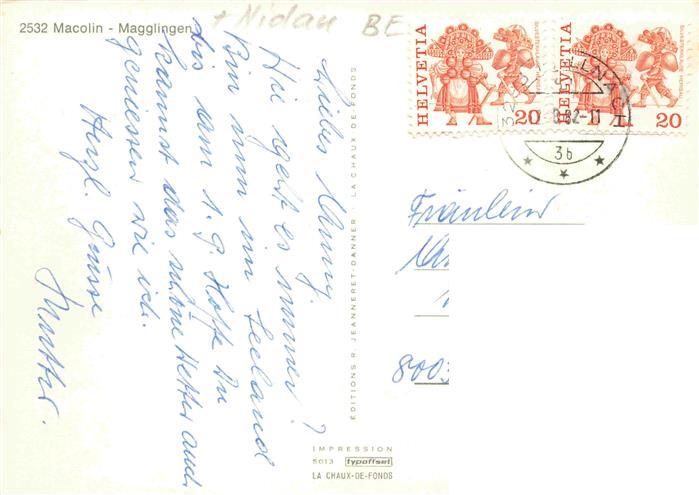 2532 Macolin - Magglingen
+ Nidau BE
Liebes
Wie geht es immer?
Bin nun im Seeland
bis am 1.9. Hoffe Du
kannst das schöne Wetter auch
geniessen wie ich.
Herzl. Grüsse
Mutter.
EDITIONS R. JEANNERET-DANNER LA CHAUX-DE-FONDS
IMPRESSION
5013 typoffset
LA CHAUX-DE-FONDS
HELVETIA
20
HELVETIA
20
82-11
3b
Fräulein
8003